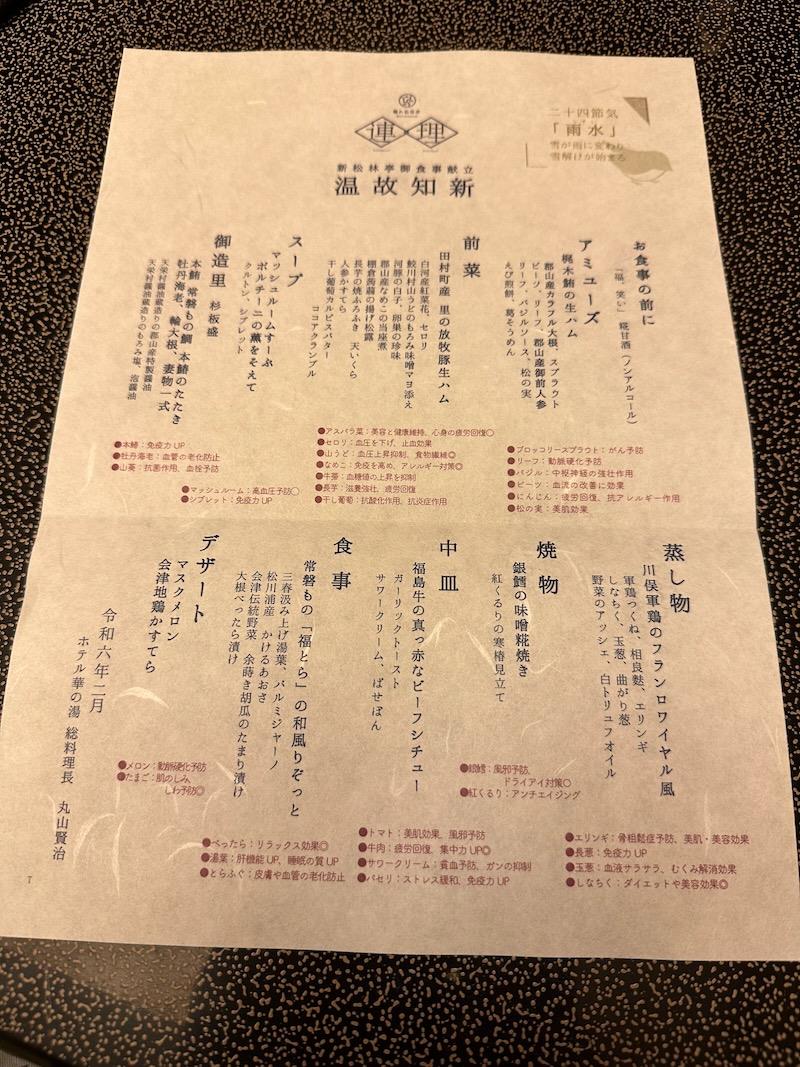 連理
新松林亭御食事献立
温故知新
二十四節気
「雨水」
雪が雨に変わり
雪解けが始まる
お食事の前に
「福、笑い」糀甘酒(ノンアルコール)
アミューズ
梶木鮪の生ハム
郡山産カラフル大根、スプラウト
ビーツ、リーフ、郡山産御前人参
リーフ、バジルソース、松の実
えび煎餅、葛そうめん
●ブロッコリースプラウト:がん予防
●リーフ:動脈硬化予防
●バジル:中枢神経の強壮作用
●ビーツ:血流の改善に効果
●にんじん:疲労回復、抗アレルギー作用
●松の実:美肌効果
前菜
田村町産 里の放牧豚生ハム
白河産紅菜花、セロリ
鮫川村山うどのもろみ味噌マヨ添え
河豚の白子、卵巣の珍味
郡山産なめこの当座煮
棚倉蒟蒻の揚げ松露
長芋の焼ふろふき 天いくら
人参かすてら
干し葡萄カルピスバター
ココアクランブル
●アスパラ菜:美容と健康維持、心身の疲労回復○
●セロリ:血圧を下げ、止血効果
●山うど:血圧上昇抑制、食物繊維◎
●なめこ:免疫を高め、アレルギー対策◎
●牛蒡:血糖値の上昇を抑制
●長芋:滋養強壮、疲労回復
●干し葡萄:抗酸化作用、抗炎症作用
スープ
マッシュルームすーぷ
ポルチーニの薫をそえて
クルトン、シブレット
●マッシュルーム:高血圧予防○
●シブレット:免疫力UP
御造里 杉板盛
本鮪 常磐もの鯛 本鯖のたたき
牡丹海老、輪大根、妻物一式
天栄村醤油蔵造りの郡山産特製醤油
天栄村醤油蔵造りのもろみ塩、泡醤油
●本鯖:免疫力UP
●牡丹海老:血管の老化防止
●山葵:抗菌作用、血栓予防
蒸し物
川俣軍鶏のフランロワイヤル風
軍鶏つくね、相良麩、エリンギ
しなちく、玉葱、曲がり葱
野菜のアッシェ、白トリュフオイル
●エリンギ:骨粗鬆症予防、美肌・美容効果
●長葱:免疫力UP
●玉葱:血液サラサラ、むくみ解消効果
●しなちく:ダイエットや美容効果◎
焼物
銀鱈の味噌糀焼き
紅くるりの寒椿見立て
●銀鱈:風邪予防、
ドライアイ対策○
●紅くるり:アンチエイジング
中皿
福島牛の真っ赤なビーフシチュー
ガーリックトースト
サワークリーム、ぱせぽん
●トマト:美肌効果、風邪予防
●牛肉:疲労回復、集中力UP◎
●サワークリーム:貧血予防、ガンの抑制
●パセリ:ストレス緩和、免疫力UP
食事
常磐もの「福とら」の和風りぞっと
三春汲み上げ湯葉、パルミジャーノ
松川浦産 かけるあおさ
会津伝統野菜 余蒔き胡瓜のたまり漬け
大根べったら漬け
●べったら:リラックス効果◎
●湯葉:肝機能UP、睡眠の質UP
●とらふぐ:皮膚や血管の老化防止
デザート
マスクメロン
会津地鶏かすてら
●メロン:動脈硬化予防
●たまご:肌のしみ、
しわ予防◎
令和六年二月
ホテル華の湯 総料理長 丸山賢治